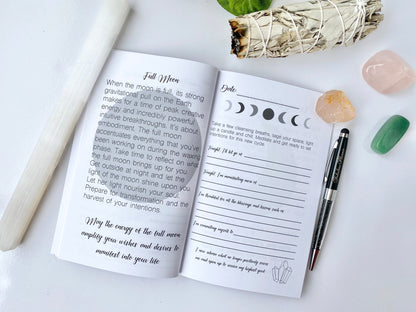 Full Moon
When the moon is full, its strong
gravitational pull on the Earth
makes for a time of peak creative
energy and incredibly powerful
intuitive breakthroughs. It's about
embodiment. The full moon
accentuates everything that you've
been working on during the waxing
phase. Take time to reflect on what
the full moon brings up for you.
Get outside at night and let the
light of the moon shine upon you.
Let her light nourish your soul.
Prepare for transformation and the
harvest of your intentions.
May the energy of the full moon
amplify your wishes and desires to
manifest into your life.
Date:
Take a few cleansing breaths, sage your space, light
up a candle and chill. Meditate and get ready to set
intentions for this new cycle.
Tonight, I'll let go of
Tonight, I'm manifesting more of
I'm thankful for all the blessings and lessons such as
I'm committing myself to
I now release what no longer positively serves
me and open up to receive my highest good.